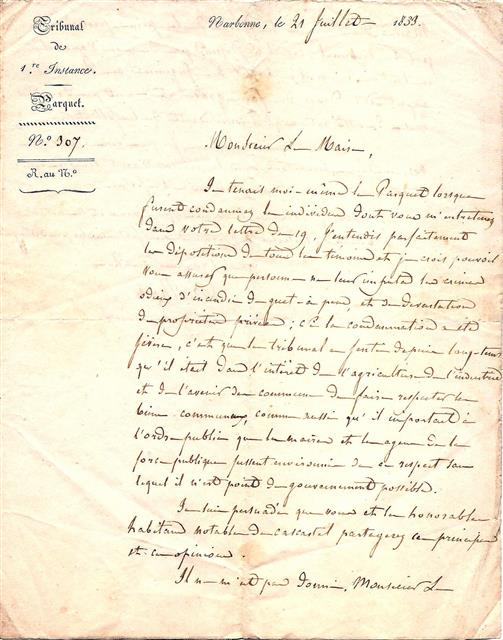 Tribunal
de
1.re Instance.
Parquet.
N.o 307.
R. au N.o
Narbonne, le 21 Juillet 1833.
Monsieur Le Maire,
Je tenais moi-même le Parquet lorsque
furent condamnés les individus dont vous m'entretenez
dans votre lettre du 19. J'entendis parfaitement
les dépositions de tous les témoins et je crois pouvoir
vous assurer que personne ne leur imputa les crimes
odieux d'incendie de guet-à-pens, et de dévastation
de propriétés privées ; si la condamnation a été
sévère, c'est que le tribunal a senti depuis long-tems
qu'il était dans l'intérêt de l'agriculture de l'industrie
et de l'avenir des communes de faire respecter les
biens communaux, comme aussi qu'il importait à
l'ordre public que les maires et les agens de la
force publique fussent environnés de ce respect sans
lequel il n'est point de gouvernement possible.
Je suis persuadé que vous et les honorables
habitans notables de cascastel partagerez ces principes
et ces opinions.
Il ne m'est pas donné, Monsieur Le